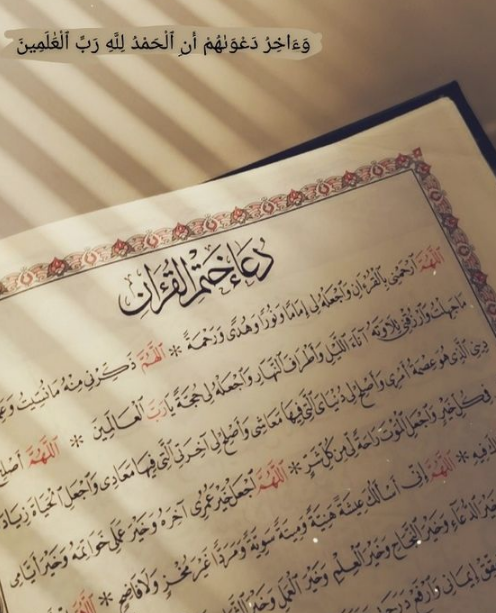 وَءَاخِرُ دَعْوَىٰهُمْ أَنِ ٱلْحَمْدُ لِلَّهِ رَبِّ ٱلْعَٰلَمِينَ
دُعَاءُ خَتْمِ الْقُرْآنِ
اَللّٰهُمَّ ارْحَمْنِي بِالْقُرْءَانِ وَاجْعَلْهُ لِي إِمَامًا وَنُورًا وَهُدًى وَرَحْمَةً * اَللّٰهُمَّ ذَكِّرْنِي مِنْهُ مَا نَسِيتُ
مَا جَهِلْتُ وَارْزُقْنِي تِلَاوَتَهُ آنَاءَ اللَّيْلِ وَأَطْرَافَ النَّهَارِ وَاجْعَلْهُ لِي حُجَّةً يَا رَبَّ الْعَالَمِينَ * اَللّٰهُمَّ
دِينِي الَّذِي هُوَ عِصْمَةُ أَمْرِي وَأَصْلِحْ لِي دُنْيَايَ الَّتِي فِيهَا مَعَاشِي وَأَصْلِحْ لِي آخِرَتِي الَّتِي فِيهَا مَعَادِي وَاجْعَلِ الْحَيَاةَ زِيَادَةً
فِي كُلِّ خَيْرٍ وَاجْعَلِ الْمَوْتَ رَاحَةً لِي مِنْ كُلِّ شَرٍّ * اَللّٰهُمَّ اجْعَلْ خَيْرَ عُمْرِي آخِرَهُ وَخَيْرَ عَمَلِي خَوَاتِمَهُ وَخَيْرَ أَيَّامِي
فِيهِ * اَللّٰهُمَّ إِنِّي أَسْأَلُكَ عِيشَةً هَنِيَّةً وَمِيتَةً سَوِيَّةً وَمَرَدًّا غَيْرَ مُخْزٍ وَلَا فَاضِحٍ * اَللّٰهُمَّ
خَيْرَ الدُّعَاءِ وَخَيْرَ النَّجَاحِ وَخَيْرَ الْعِلْمِ وَخَيْرَ الْعَمَلِ وَخَيْرَ
إِيمَانِي وَارْفَعْ